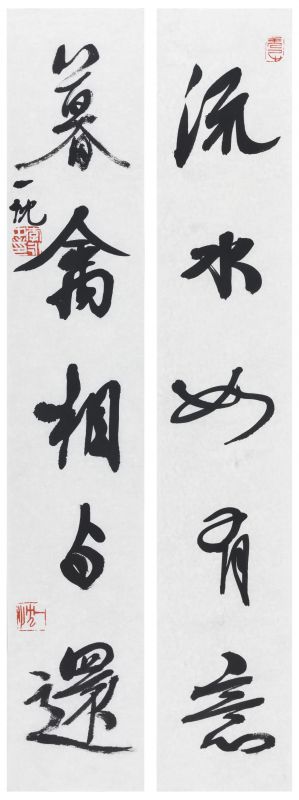 流水如有意
暮禽相与還
一忱